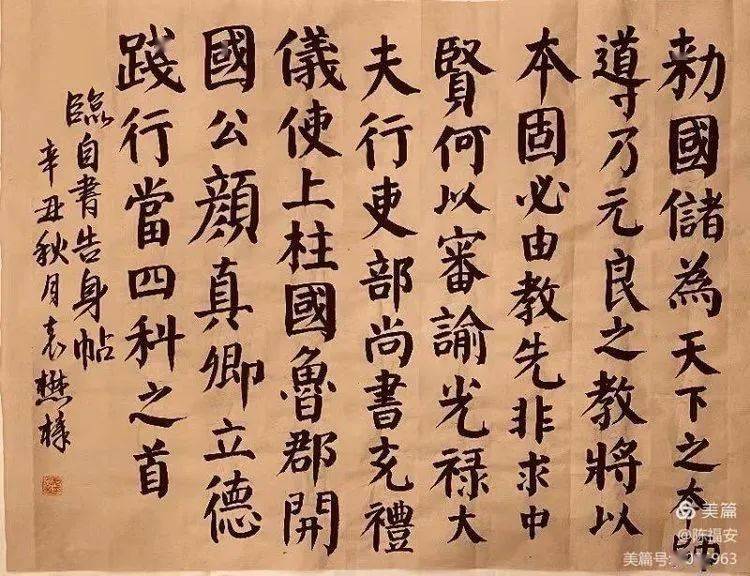 勑國儲為天下之本師
導乃元良之教將以
本固必由教先非求中
賢何以審諭光禄大
夫行吏部尚書充禮
儀使上柱國魯郡開
國公顔真卿立德
踐行當四科之首
臨自書告身帖
辛丑秋月袁懋
美篇
@陈福安
美篇号: 963